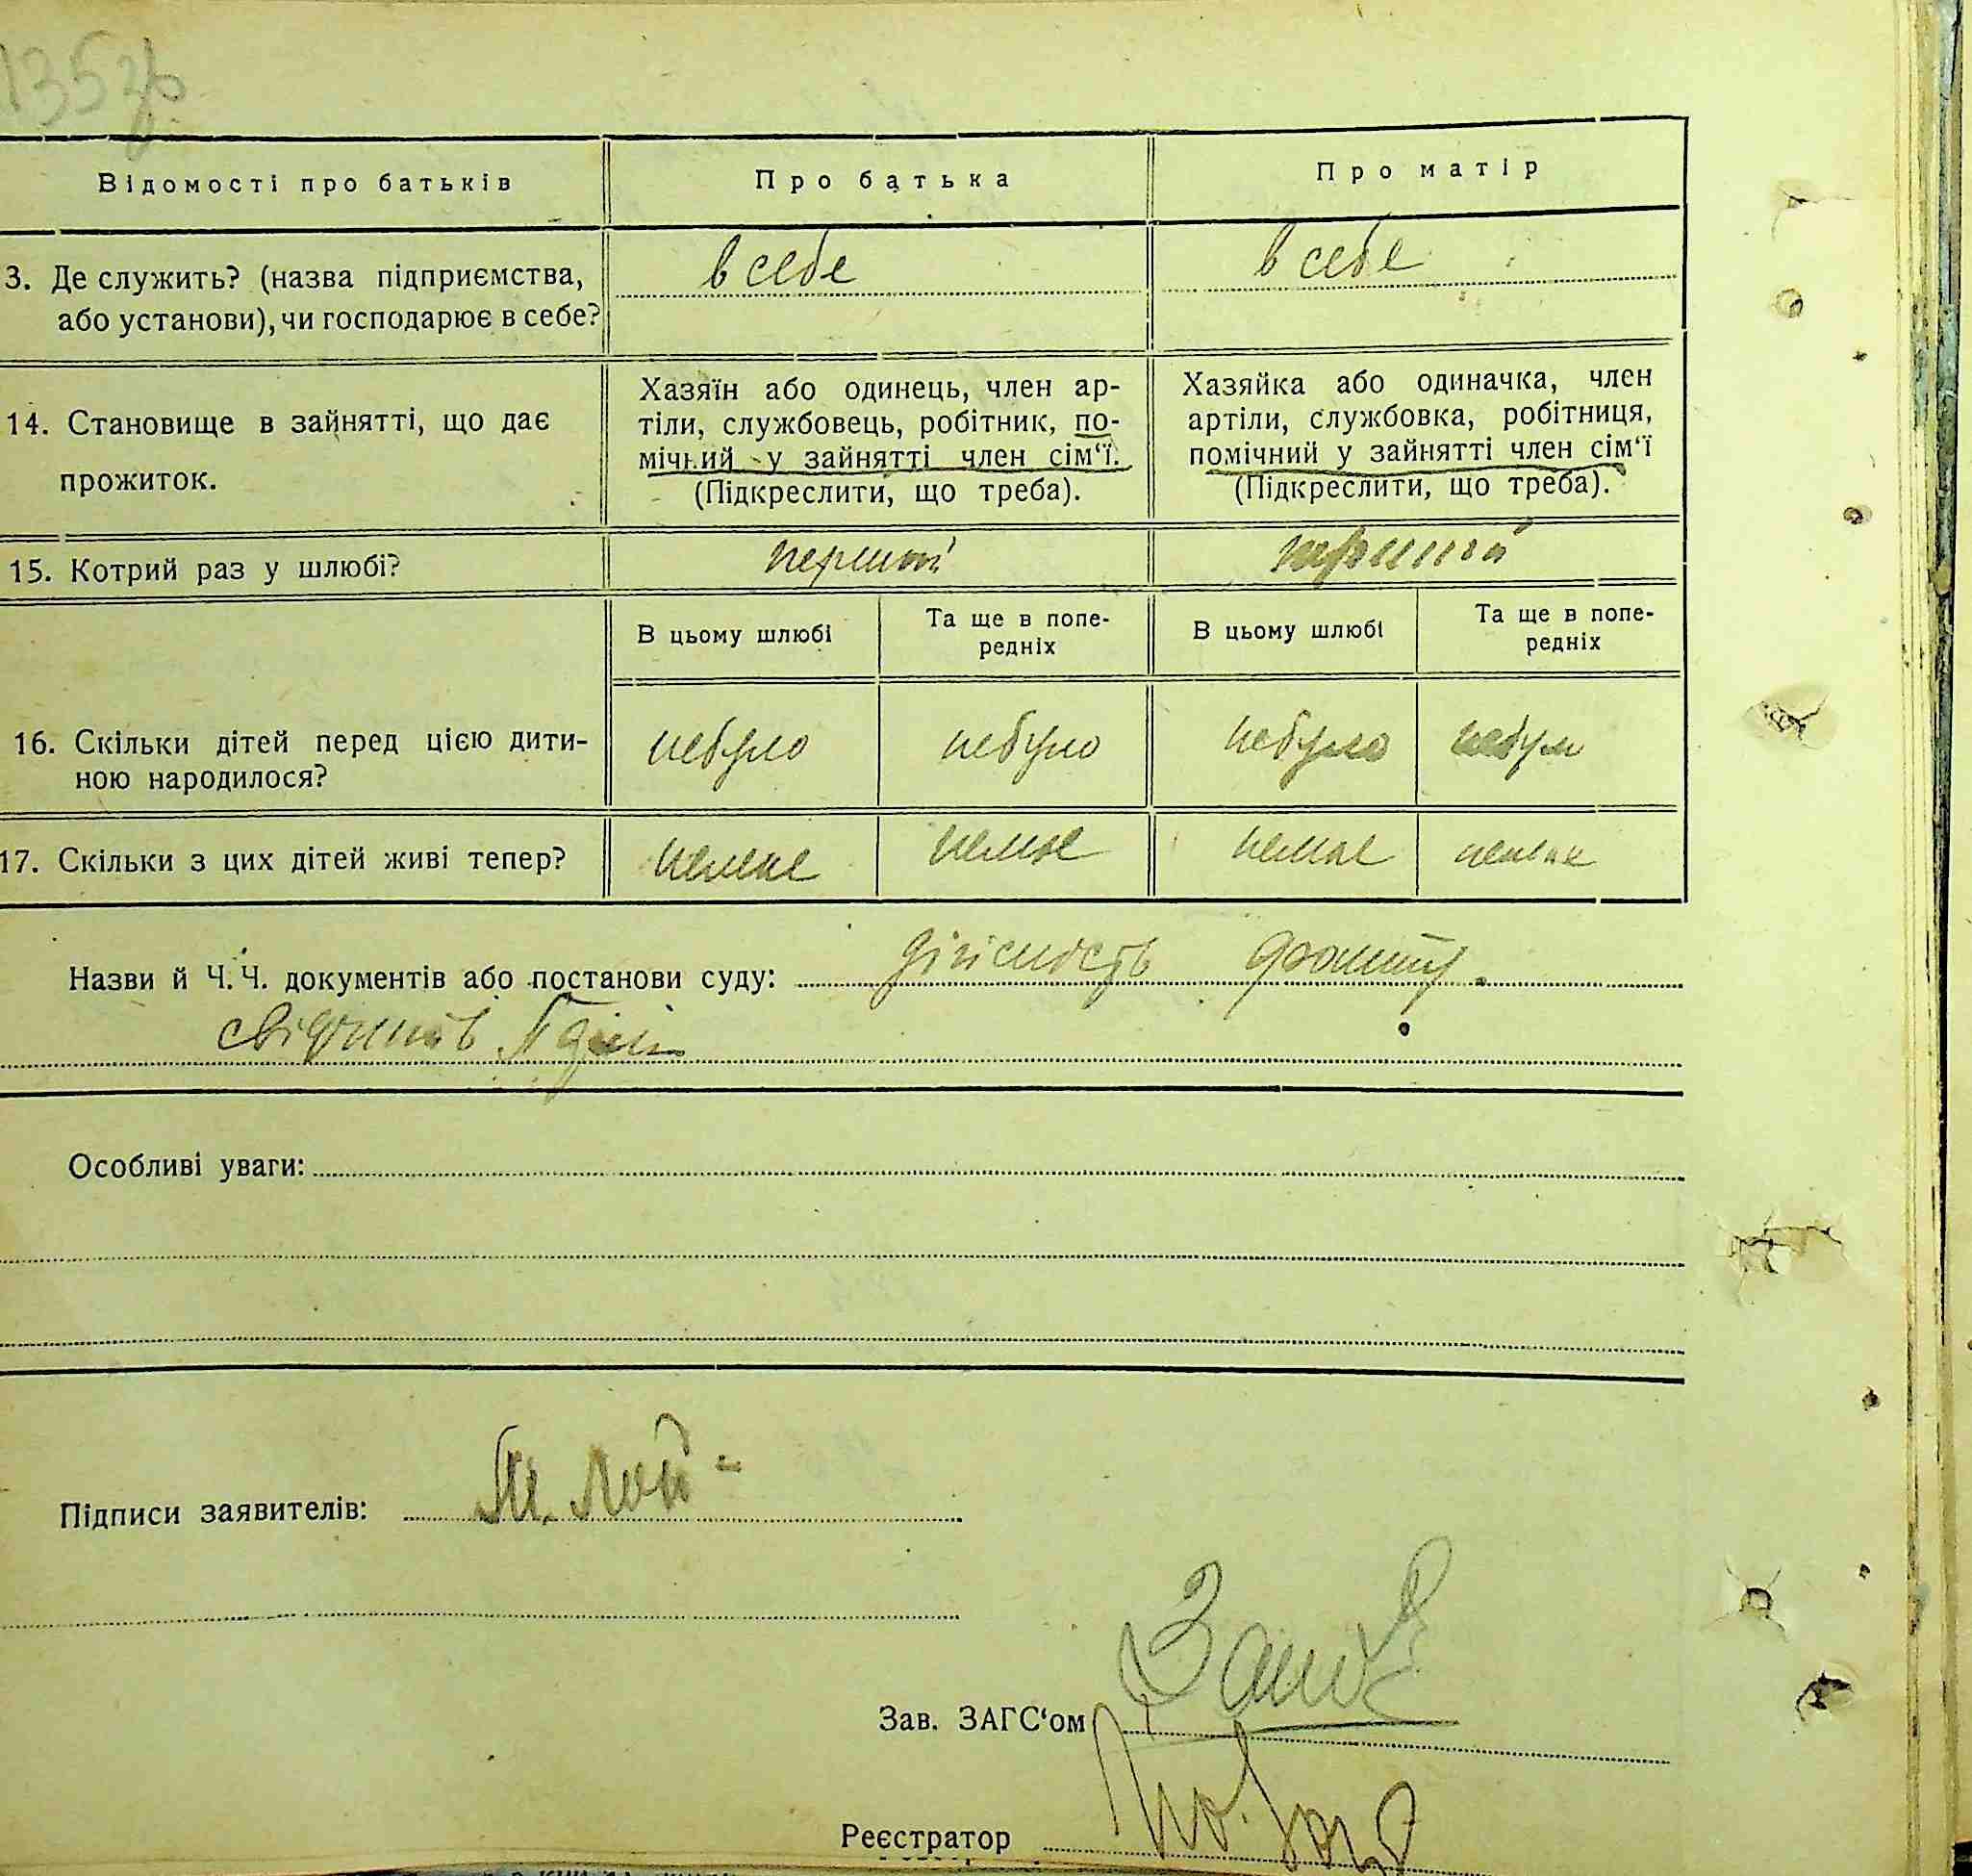 135зв
Відомості про батьків
Про батька
Про матір
3. Де служить? (назва підприємства,
або установи), чи господарює в себе?
в себе
в себе
14. Становище в зайнятті, що дає
прожиток.
Хазяїн або одинець, член ар-
тіли, службовець, робітник, по-
мічний у зайнятті член сім‘ї.
(Підкреслити, що треба).
Хазяйка або одиначка, член
артіли, службовка, робітниця,
помічний у зайнятті член сім‘ї
(Підкреслити, що треба).
15. Котрий раз у шлюбі?
перший
перший
В цьому шлюбі
Та ще в попе-
редніх
В цьому шлюбі
Та ще в попе-
редніх
16. Скільки дітей перед цією дити-
ною народилося?
небуло
небуло
небуло
небуло
17. Скільки з цих дітей живі тепер?
немає
немає
немає
немає
Назви й Ч. Ч. документів або постанови суду: дійсность
свідчить
Особливі уваги:
Підписи заявителів:
Зав. ЗАГС‘ом
Реєстратор